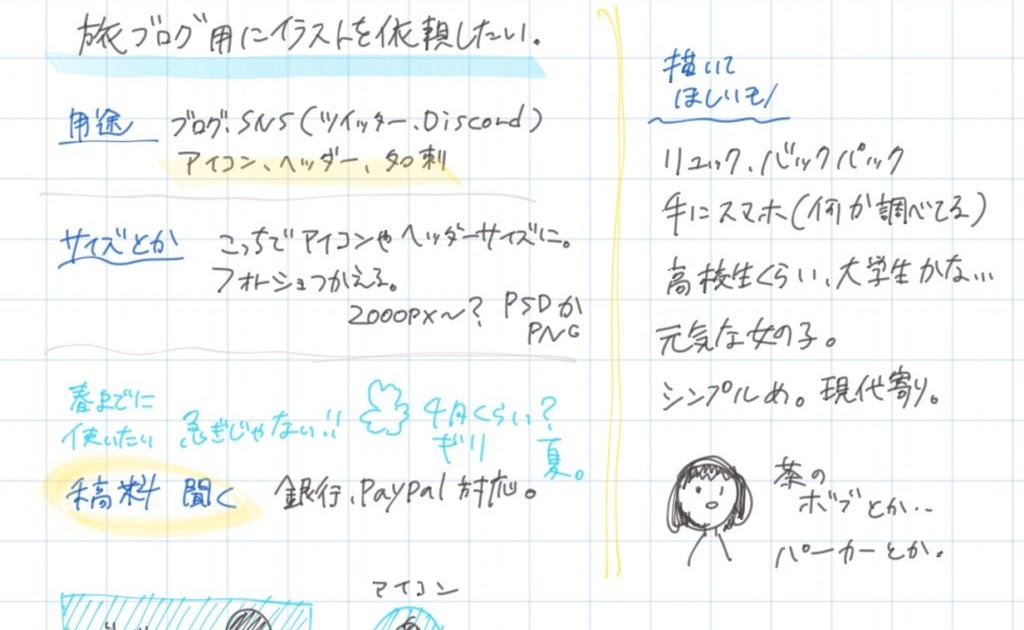 旅ブログ用にイラストを依頼したい。
用途 ブログ、SNS(ツイッター、Discord)
アイコン、ヘッダー、名刺
サイズとか こっちでアイコンやヘッダーサイズに。
フォトショつかえる。
2000px〜? PSDか
PNG
春までに
使いたい 急ぎじゃない!! 4月くらい?
ギリ 夏。
稿料 聞く 銀行、Paypal 対応。
アイコン
描いて
ほしいモノ
リュック、バックパック
手にスマホ(何か調べてる)
高校生くらい、大学生かな…
元気な女の子。
シンプルめ。現代寄り。
茶の
ボブとか‥
パーカーとか。